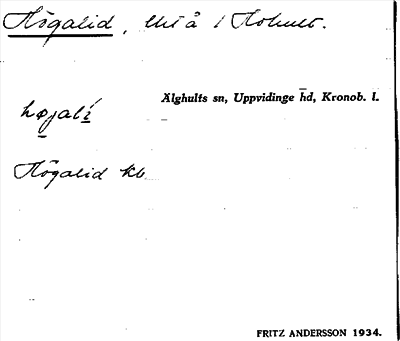 Högalid, tht å / Hohult.
Älghults sn, Uppvidinge hd, Kronob. l.
højalí
Högalid kb.
FRITZ ANDERSSON 1934.